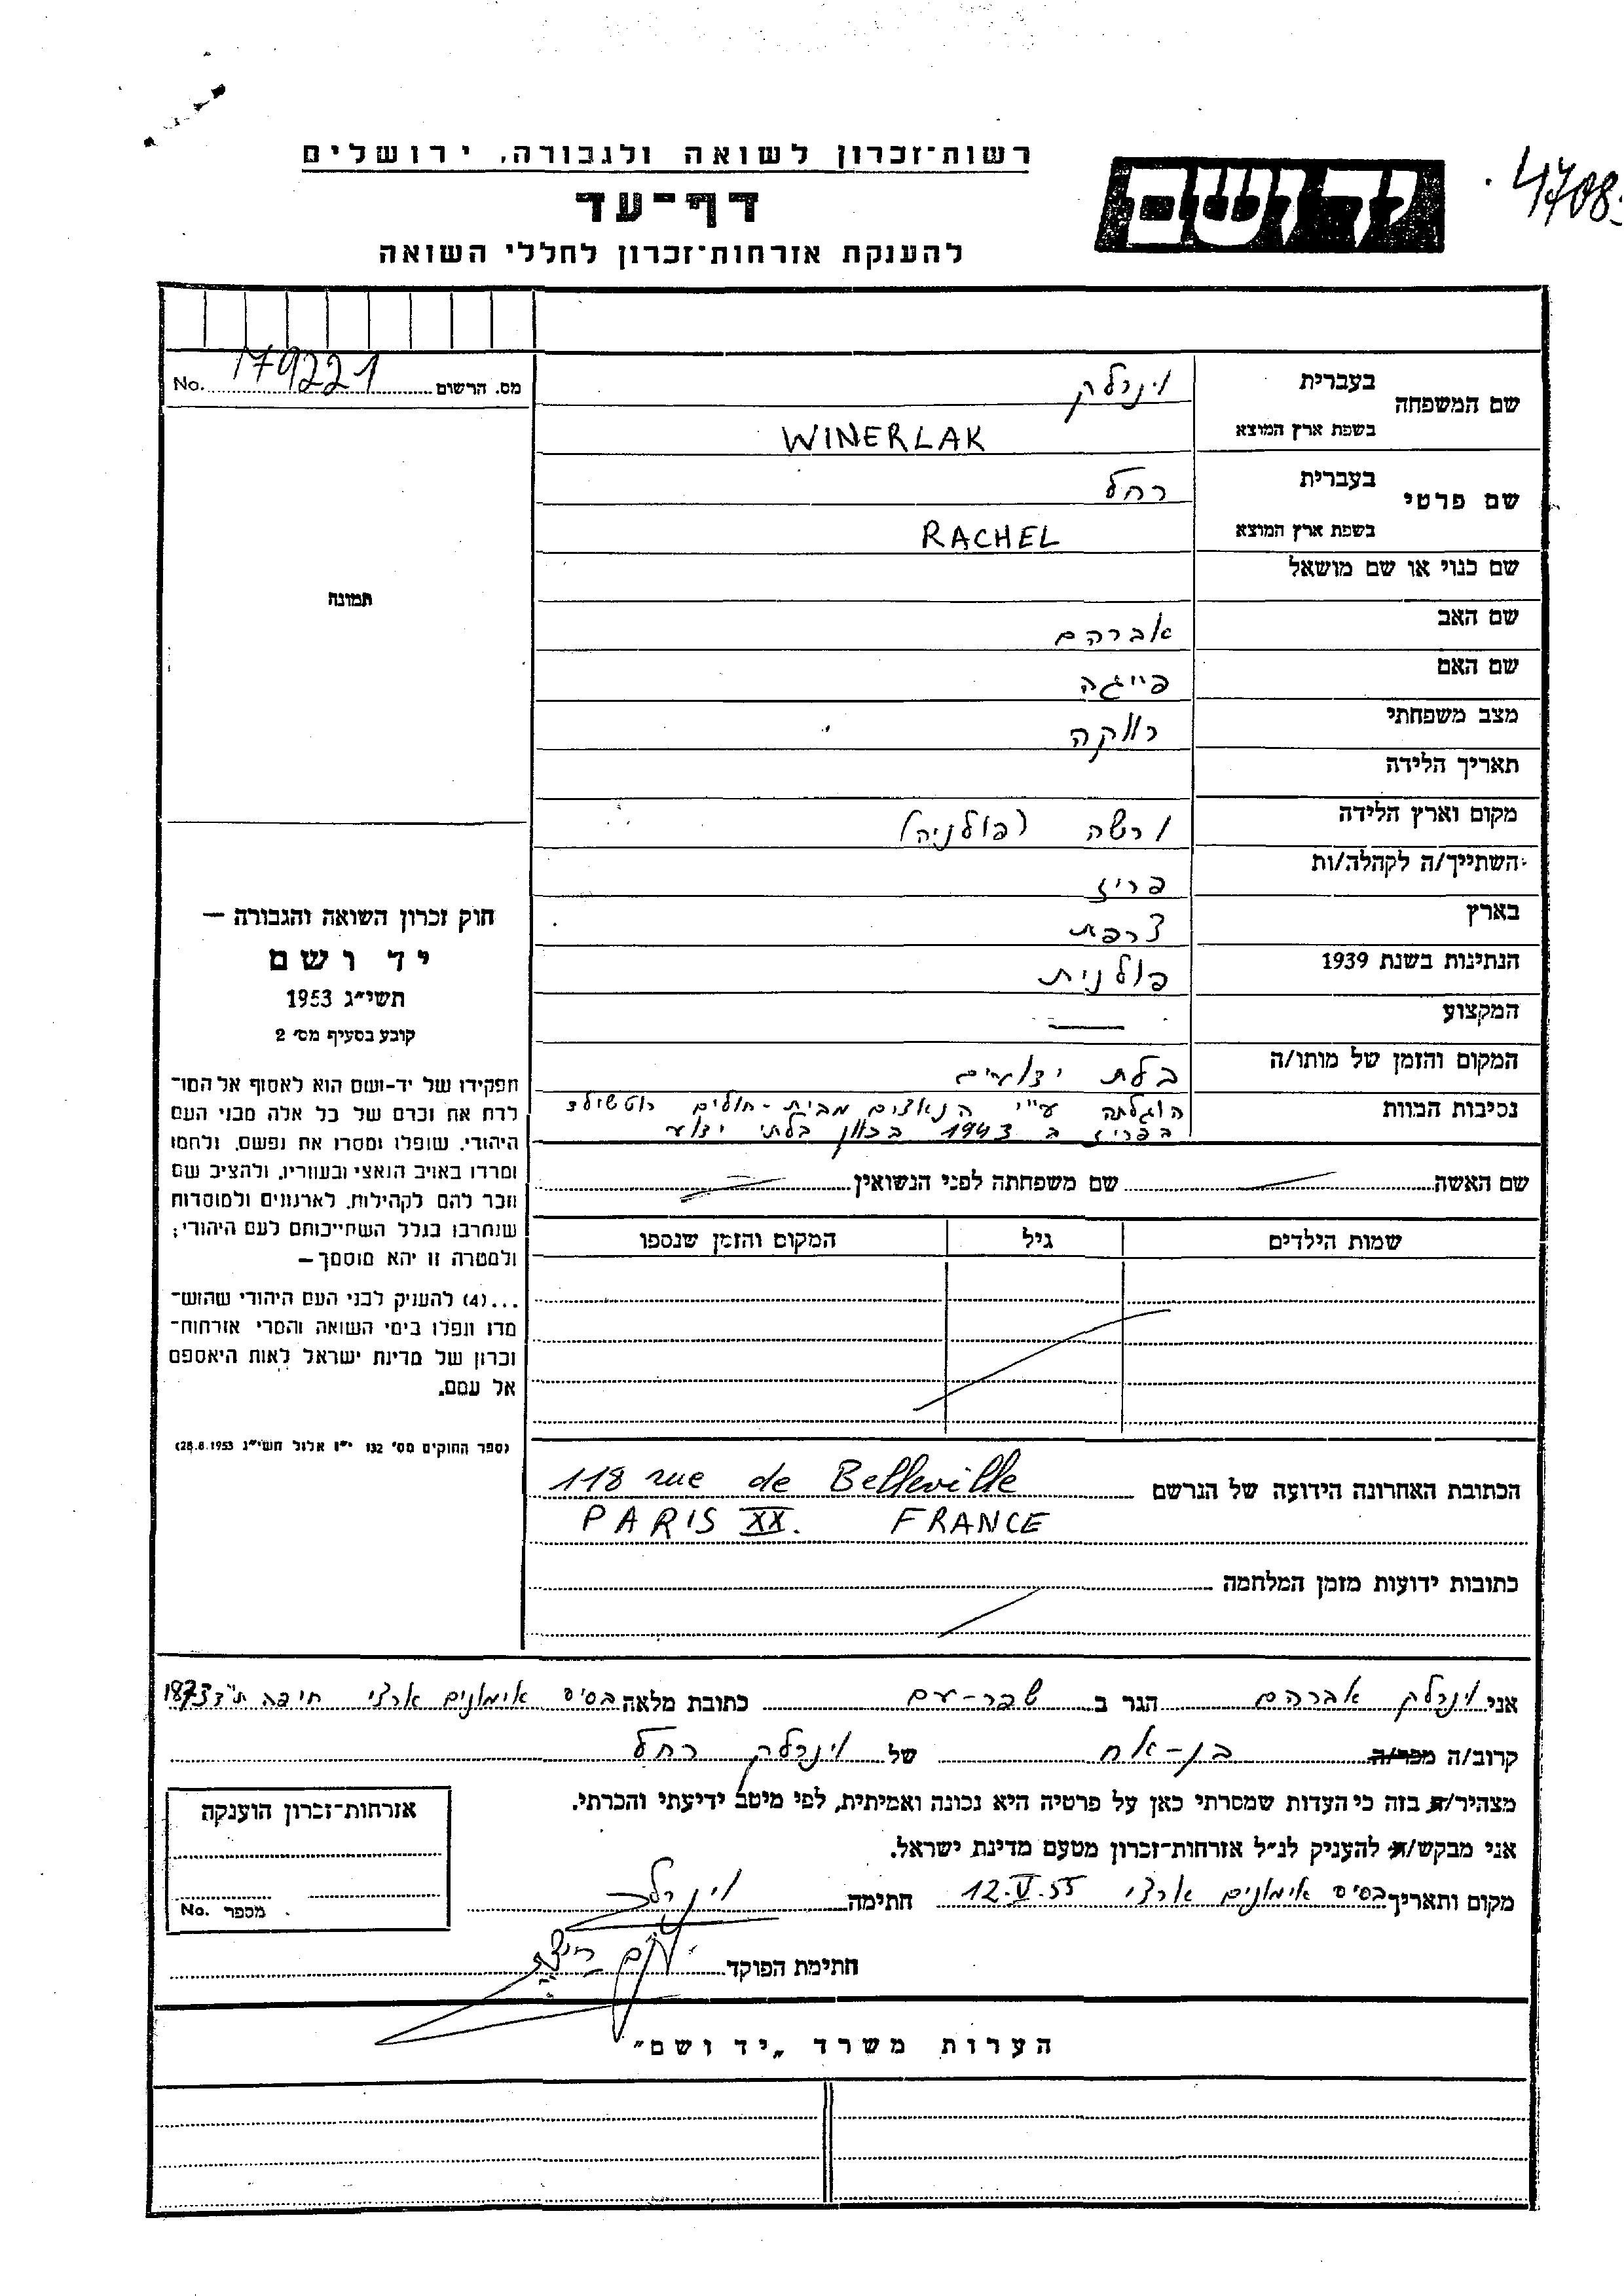 רשות־זכרון לשואה ולגבורה, ירושלים
יד ושם
דף־עד
להענקת אזרחות־זכרון לחללי השואה
מס. הרשום 179221 No.
שם המשפחה בעברית וינרלק
בשפת ארץ המוצא WINERLAK
שם פרטי בעברית רחל
בשפת ארץ המוצא RACHEL
שם כנוי או שם מושאל
שם האב אברהם
שם האם פייגה
מצב משפחתי רווקה
תאריך הלידה
מקום וארץ הלידה ורשה (פולניה)
השתייך/ה לקהלה/ות פריז
בארץ צרפת
הנתינות בשנת 1939 פולנית
המקצוע —
המקום והזמן של מותו/ה בלת ידועים
נסיבות המוות הוגלתה ע״י הנאצים מבית-חולים רוטשילד
בפריז ב 1943 בכוון בלתי ידוע
שם האשה שם משפחתה לפני הנשואין
שמות הילדים גיל המקום והזמן שנספו
הכתובת האחרונה הידועה של הנרשם 118 rue de Belleville
PARIS XX. FRANCE
כתובות ידועות מזמן המלחמה
תמונה
חוק זכרון השואה והגבורה —
יד ושם
תשי״ג 1953
קובע בסעיף מס׳ 2
תפקידו של יד-ושם הוא לאסוף אל המו־
לדת את זכרם של כל אלה מבני העם
היהודי, שנפלו ומסרו את נפשם, נלחמו
ומרדו באויב הנאצי ובעוזריו, ולהציב שם
וזכר להם לקהילות, לארגונים ולמוסדות
שנחרבו בגלל השתייכותם לעם היהודי;
ולמטרה זו יהא מוסמך —
...(4) להעניק לבני העם היהודי שהוש־
מדו ונפלו בימי השואה והמרי אזרחות־
זכרון של מדינת ישראל לאות היאספם
אל עמם.
(ספר החוקים מס׳ 132 י״ז אלול תשי״ג 28.8.1953)
אני וינרלק אברהם הגר ב שפר-עם כתובת מלאה בסיס אימונים ארצי חיפה ת״ד 1873
קרוב/ה מכר/ה בן-אח של וינרלק רחל
מצהיר/ה בזה כי העדות שמסרתי כאן על פרטיה היא נכונה ואמיתית, לפי מיטב ידיעתי והכרתי.
אני מבקש/ת להעניק לנ״ל אזרחות־זכרון מטעם מדינת ישראל.
מקום ותאריך בסיס אימונים ארצי 12.VI.55 חתימה וינרלק
חתימת הפוקד
אזרחות־זכרון הוענקה
מספר No.
הערות משרד „יד ושם״